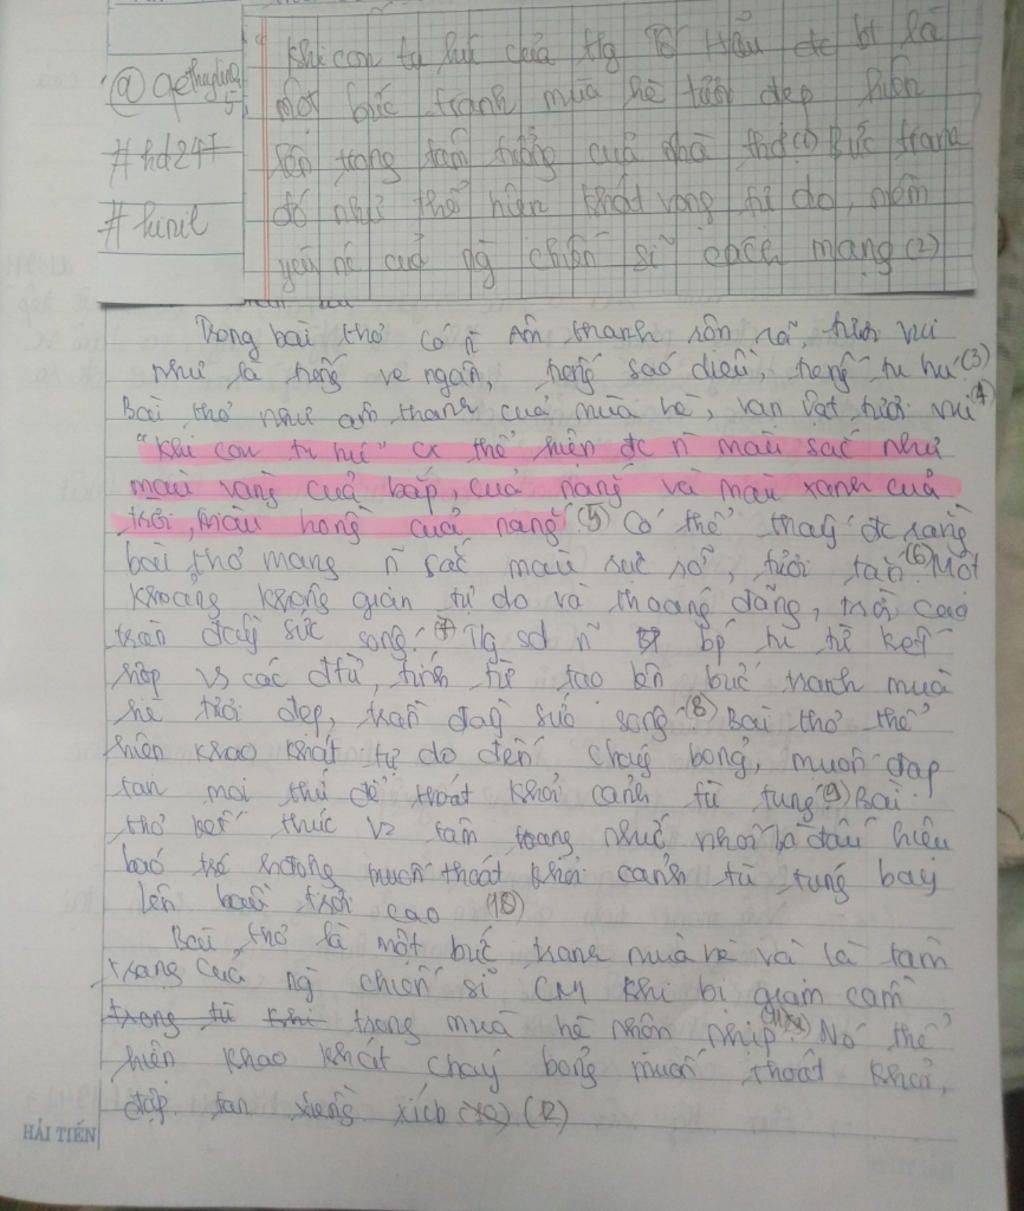 @ gethuylinh5
#hd247
#hinit
Khi con tu hú của tg Tố Hữu đc bt là
một bức tranh mùa hè tươi đẹp hiện
lên trong tâm tưởng của nhà thơ (1) Bức tranh
đó như thể hiện khát vọng tự do, niềm
yêu nc của ng chiến sĩ cách mạng (2)
Trong bài thơ có n~ âm thanh rộn rã, tươi vui
như là tiếng ve ngân, tiếng sáo diều, tiếng tu hú (3)
Bài thơ như âm thanh của mùa hè, vạn vật tươi vui (4)
"Khi con tu hú" cx thể hiện đc n~ màu sắc như
màu vàng của bắp, của nắng và màu xanh của
trời, màu hồng của nắng (5) Có thể thấy đc rằng
bài thơ mang n~ sắc màu rực rỡ, tươi tắn (6) Một
khoảng không gian tự do và thoáng đãng, trời cao
tràn đầy sức sống. (7) Tg sd n~ bp tu từ kết
hợp vs các đtừ, tính từ tạo lên bức tranh mùa
hè tươi đẹp, tràn đầy sức sống. (8) Bài thơ thể
hiện khao khát tự do đến cháy bỏng, muốn đạp
tan mọi thứ để thoát khỏi cảnh tù túng (9) Bài
thơ kết thúc vs tâm trạng nhức nhối là dấu hiệu
báo trc muốn thoát khỏi cảnh tù túng bay
lên bầu trời cao (10)
Bài thơ là một bức tranh mùa hè và là tâm
trạng của ng chiến sĩ CM khi bị giam cầm
trong tù khi trong mùa hè nhộn nhịp (11) Nó thể
hiện khao khát cháy bỏng muốn thoát khỏi,
đập tan xiềng xích (12)
HẢI TIẾN